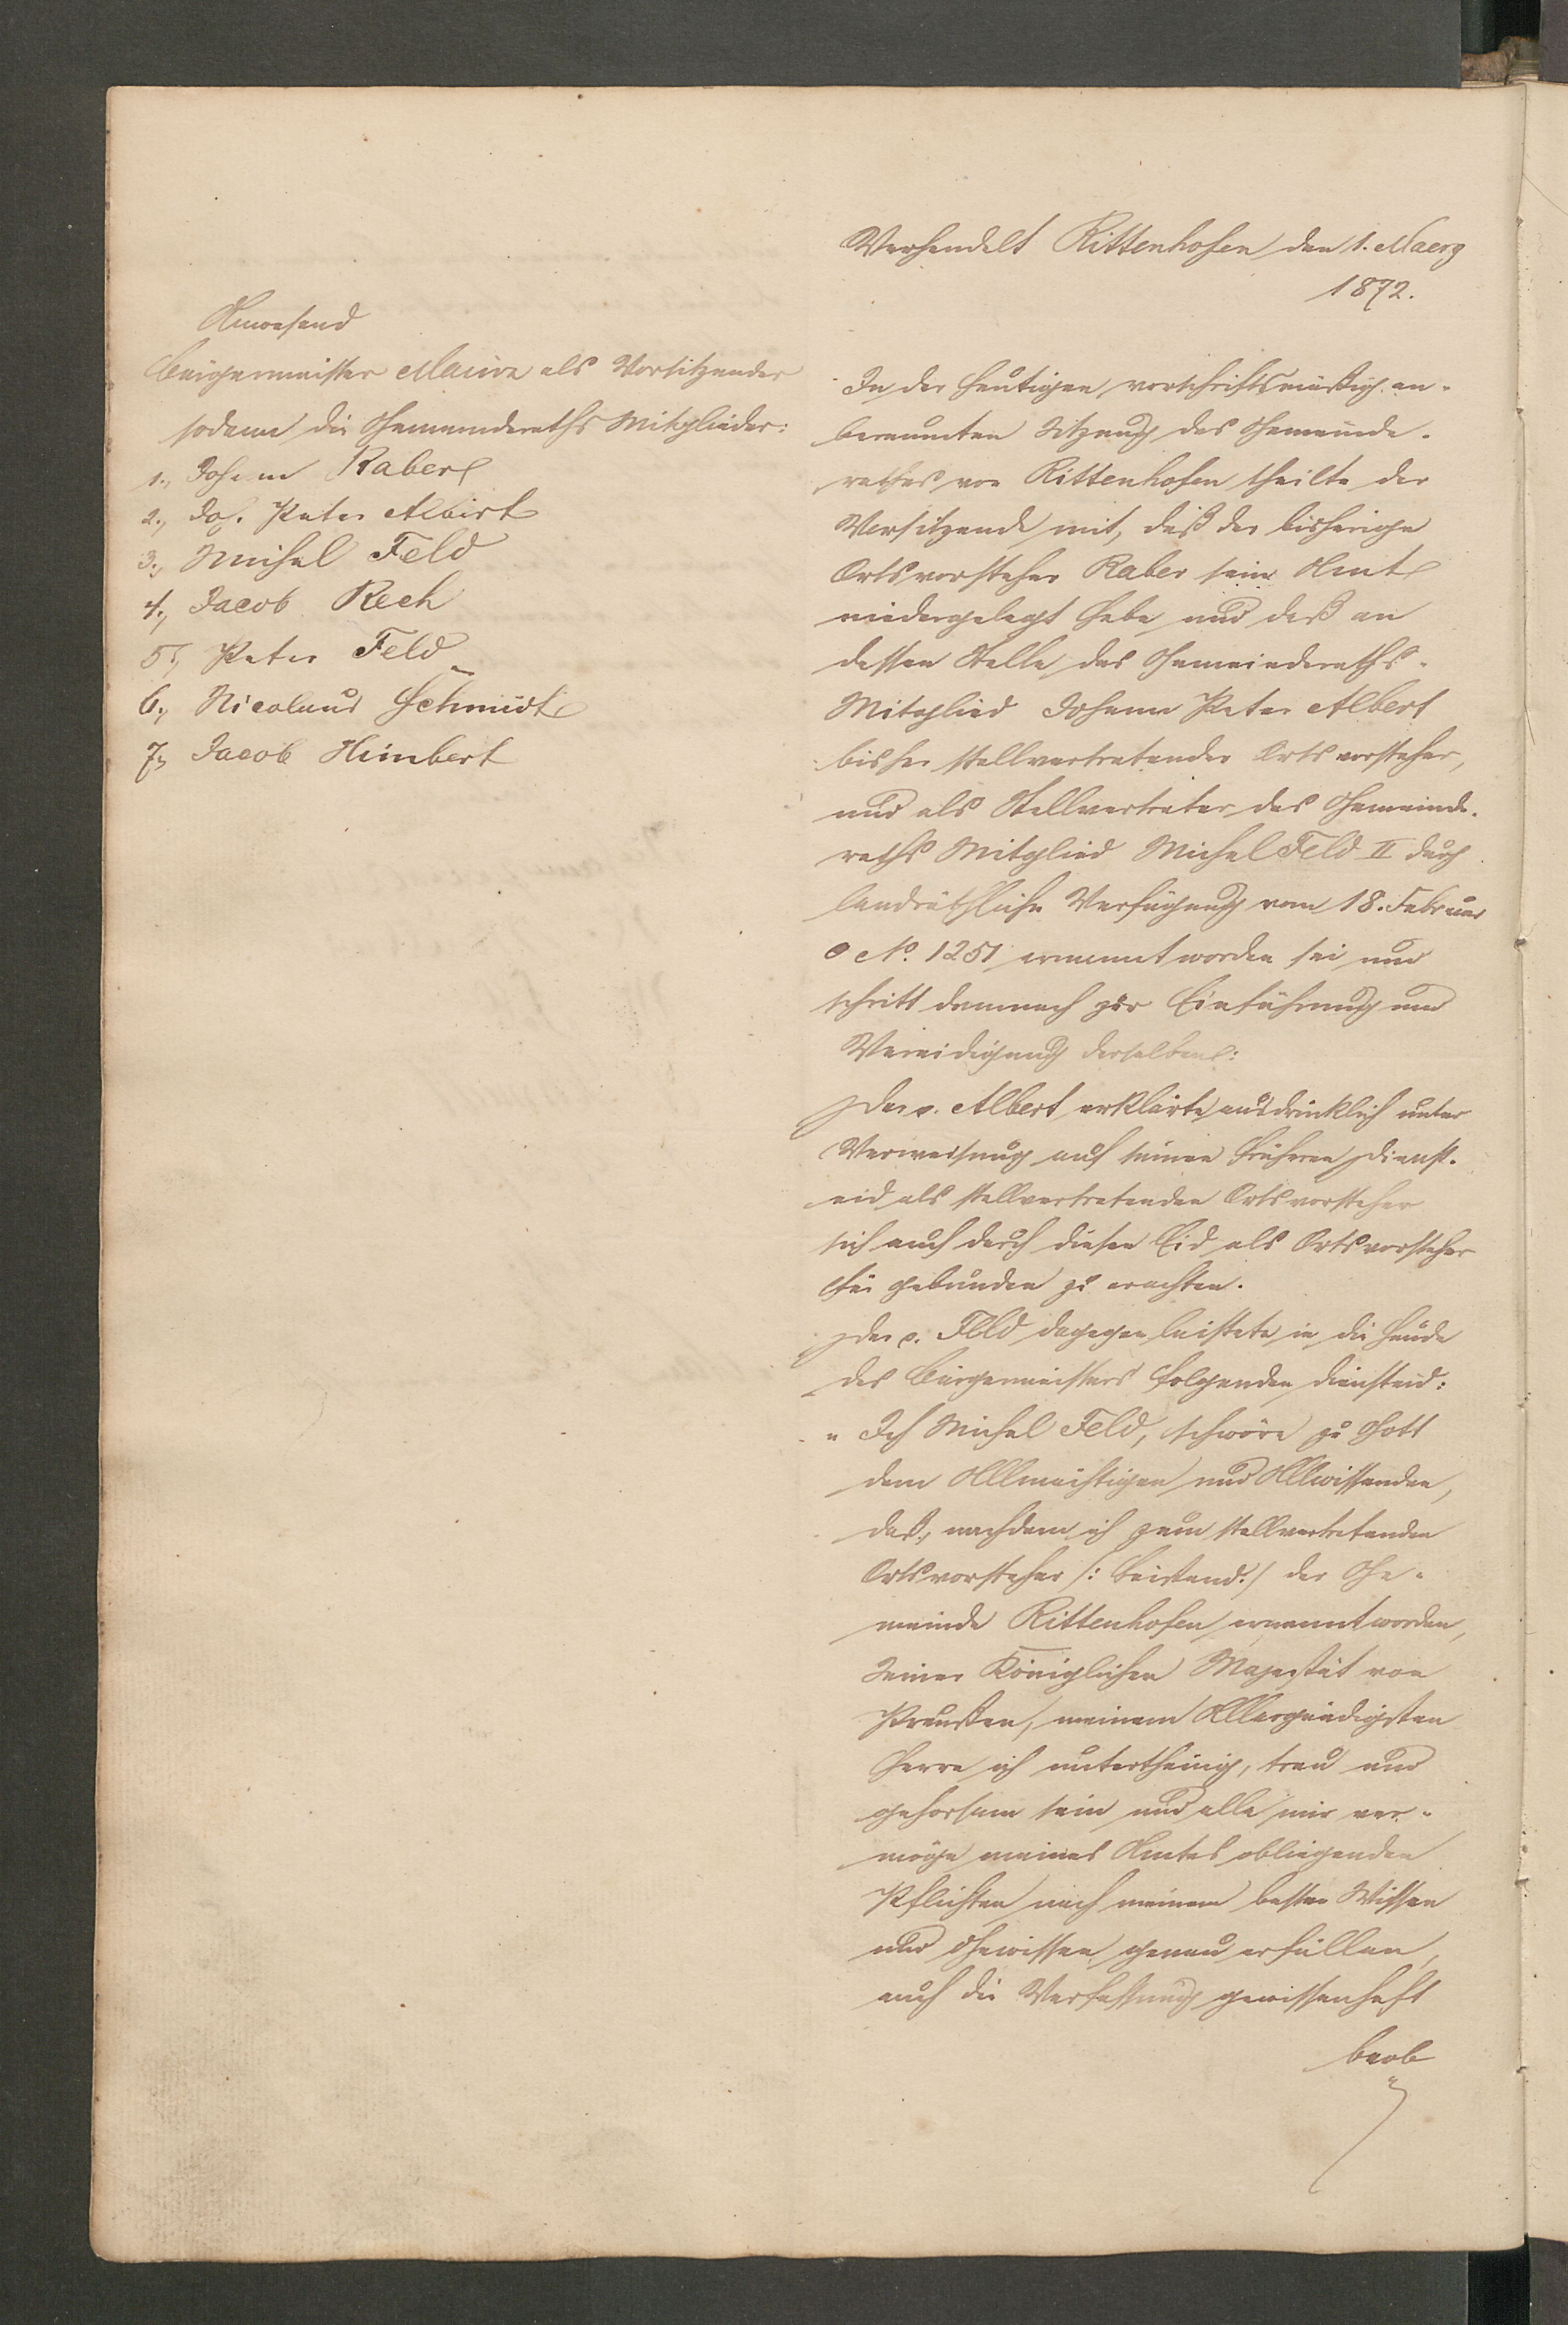 Verhandelt Rittenhofen den 1. Maerz
1872.
Anwesend
Bürgermeister als Vorsitzender
sodann die Gemeinderaths Mitglieder:
1., Johann Raber
2., Joh. Peter Albert
3., Michel Feld
4., Jacob Rech
5., Peter Feld
6., Nicolaus Schmidt
7., Jacob Himbert
In der heutigen vorschriftsmäßig an-
beraumten Sitzung des Gemeinde-
rathes von Rittenhofen theilte der
Vorsitzende mit, daß der bisherige
Ortsvorsteher Raber sein Amt
niedergelegt habe und daß an
dessen Stelle das Gemeinderaths-
Mitglied Johann Peter Albert
bisher stellvertretender Ortsvorsteher,
und als Stellvertreter das Gemeinde-
raths Mitglied Michel Feld II durch
landräthliche Verfügung vom 18. Februar
No. 1251 ernannt worden sei und
schritt demnach zur Einführung und
Vereidigung derselben:
Der p. Albert erklärte ausdrücklich unter
Verweisung auf seinen früheren Dienst-
eid als stellvertretenden Ortsvorsteher
sich auch durch diesen Eid als Ortsvorsteher
für gebunden zu erachten.
Der p. Feld dagegen leistete in die Hände
des Bürgermeisters folgenden Diensteid:
" Ich Michel Feld, schwöre zu Gott
dem Allmächtigen und Allwissenden,
daß, nachdem ich zum stellvertretenden
Ortsvorsteher /: Beistand :/ der Ge-
meinde Rittenhofen ernannt worden,
Seiner Königlichen Majestät von
Preußen, meinem Allergnädigsten
Herrn ich unterthänig, treu und
gehorsam sein und alle mir ver-
möge meines Amtes obliegenden
Pflichten nach meinem besten Wissen
und Gewissen genau erfüllen,
auch die Verfassung gewissenhaft
beob